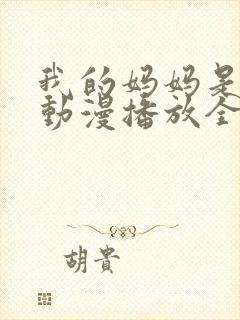 我的妈妈是
動漫播放全
胡貴